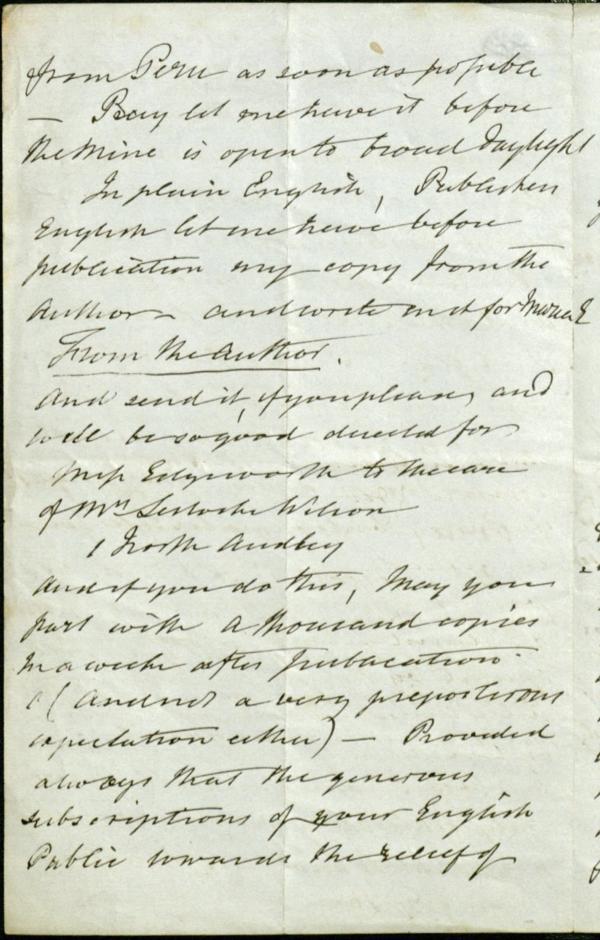 from Peru as soon as possible
— Pray let me have it before
the Mine is open to broad daylight
In plain English, Publishers
English let me have before
publication my copy from the
Author – and write in it for Maria E
From the Author.
And send it, if you please, and
will be so good directed for
Miss Edgeworth to the care
of Mrs Lestock Wilson
1 North Audley
And if you do this, May you
part with a thousand copies
in a week after publication
(And not a very preposterous
expectation either) — Provided
always that the generous
subscriptions of your English
Public towards the relief of